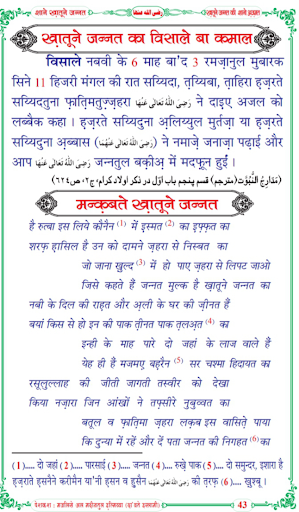 शाने ख़ातूने जन्नत رضی اللہ عنہا ख़ातूने जन्नत की शाने अ़ज़मत
ख़ातूने जन्नत का विसाले बा कमाल
विसाले नबवी के 6 माह बा'द 3 रमज़ानुल मुबारक
सिने 11 हिजरी मंगल की रात सय्यिदा, त़य्यिबा, त़ाहिरा ह़ज़रते
सय्यिदतुना फ़ात़िमतुज़्ज़हरा رَضِیَ اللہُ تَعَالٰی عَنْہَا ने दाइए अजल को
लब्बैक कहा । ह़ज़रते सय्यिदुना अ़लिय्युल मुर्तज़ा या ह़ज़रते
सय्यिदुना अ़ब्बास (رَضِیَ اللہُ تَعَالٰی عَنْہُمَا) ने नमाज़े जनाज़ा पढ़ाई और
आप رَضِیَ اللہُ تَعَالٰی عَنْہَا जन्नतुल बक़ीअ़ में मदफ़ून हुईं ।
(مدارج النبوت (مترجم) قسم پنجم باب اول در ذکر اولاد کرام، ج۲، ص۶۲۴)
मन्क़बते ख़ातूने जन्नत
है रुत्बा इस लिये कौनैन (1) में इ़स्मत (2) का इ़फ़्फ़त का
शरफ़ ह़ासिल है उन को दामने ज़हरा से निस्बत का
जो जाना ख़ुल्द (3) में हो पाए ज़हरा से लिपट जाओ
जिसे कहते हैं जन्नत मुल्क है ख़ातूने जन्नत का
नबी के दिल की राह़त और अ़ली के घर की ज़ीनत हैं
बयां किस से हो इन की पाक त़ीनत पाक त़लअ़त (4) का
इन्ही के माह पारे दो जहां के लाज वाले हैं
येह ही हैं मजमए़ बह़रैन (5) सर चश्मा हिदायत का
रसूलुल्लाह की जीती जागती तस्वीर को देखा
किया नज़ारा जिन आंखों ने तफ़्सीरे नुबुव्वत का
बतूल व फ़ात़िमा ज़हरा लक़ब इस वासित़े पाया
कि दुन्या में रहें और दें पता जन्नत की निगहत (6) का
(1).... दो जहां (2)..... पारसाई (3).... जन्नत (4).... रुख़े पाक (5).... दो समुन्दर, इशारा है
ह़ज़राते ह़सनैने करीमैन या'नी ह़सन व ह़ुसैन رَضِیَ اللہُ تَعَالٰی عَنْہُمَا की त़रफ़ (6).... ख़ुश्बू ।
पेशकश : मजलिसे अल मदीनतुल इ़ल्मिय्या (दा'वते इस्लामी) 43